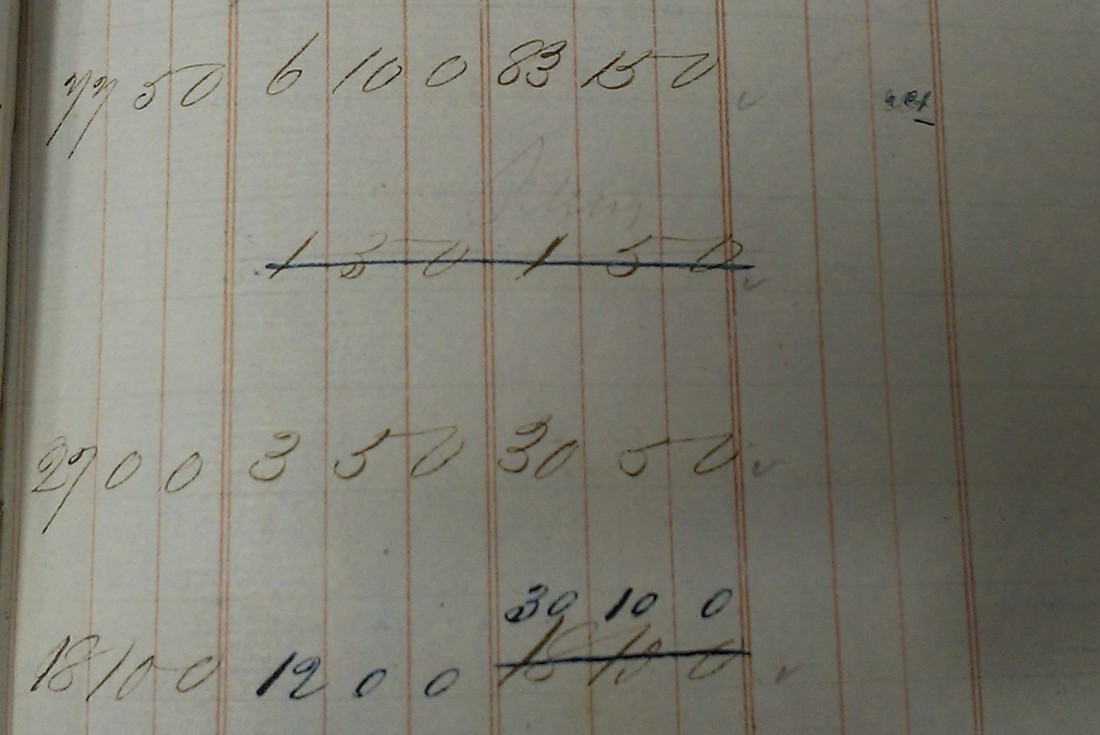 77 5 0 6 10 0 83 15 0
1 5 0 1 5 0
27 0 0 3 5 0 30 5 0
30 10 0
18 10 0 12 0 0 18 10 0